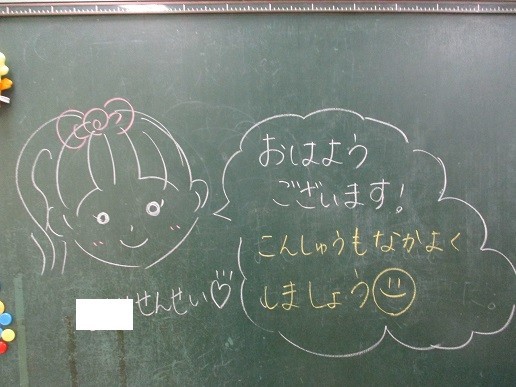 おはよう
ございます!
こんしゅうもなかよく
しましょう
せんせい